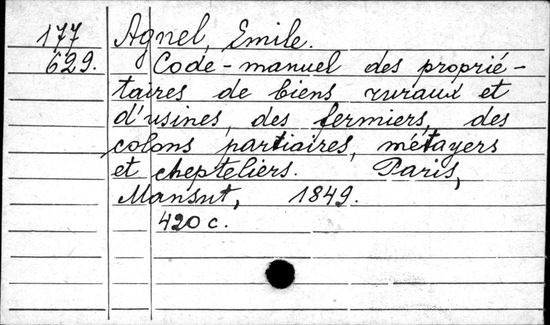 177 Agnel, Emile.
629. Code-manuel des proprié-
taires de biens ruraux et
d'usines, des fermiers, des
colons partiaires, métayers
et chepteliers. Paris,
Mansut, 1849.
420 c.